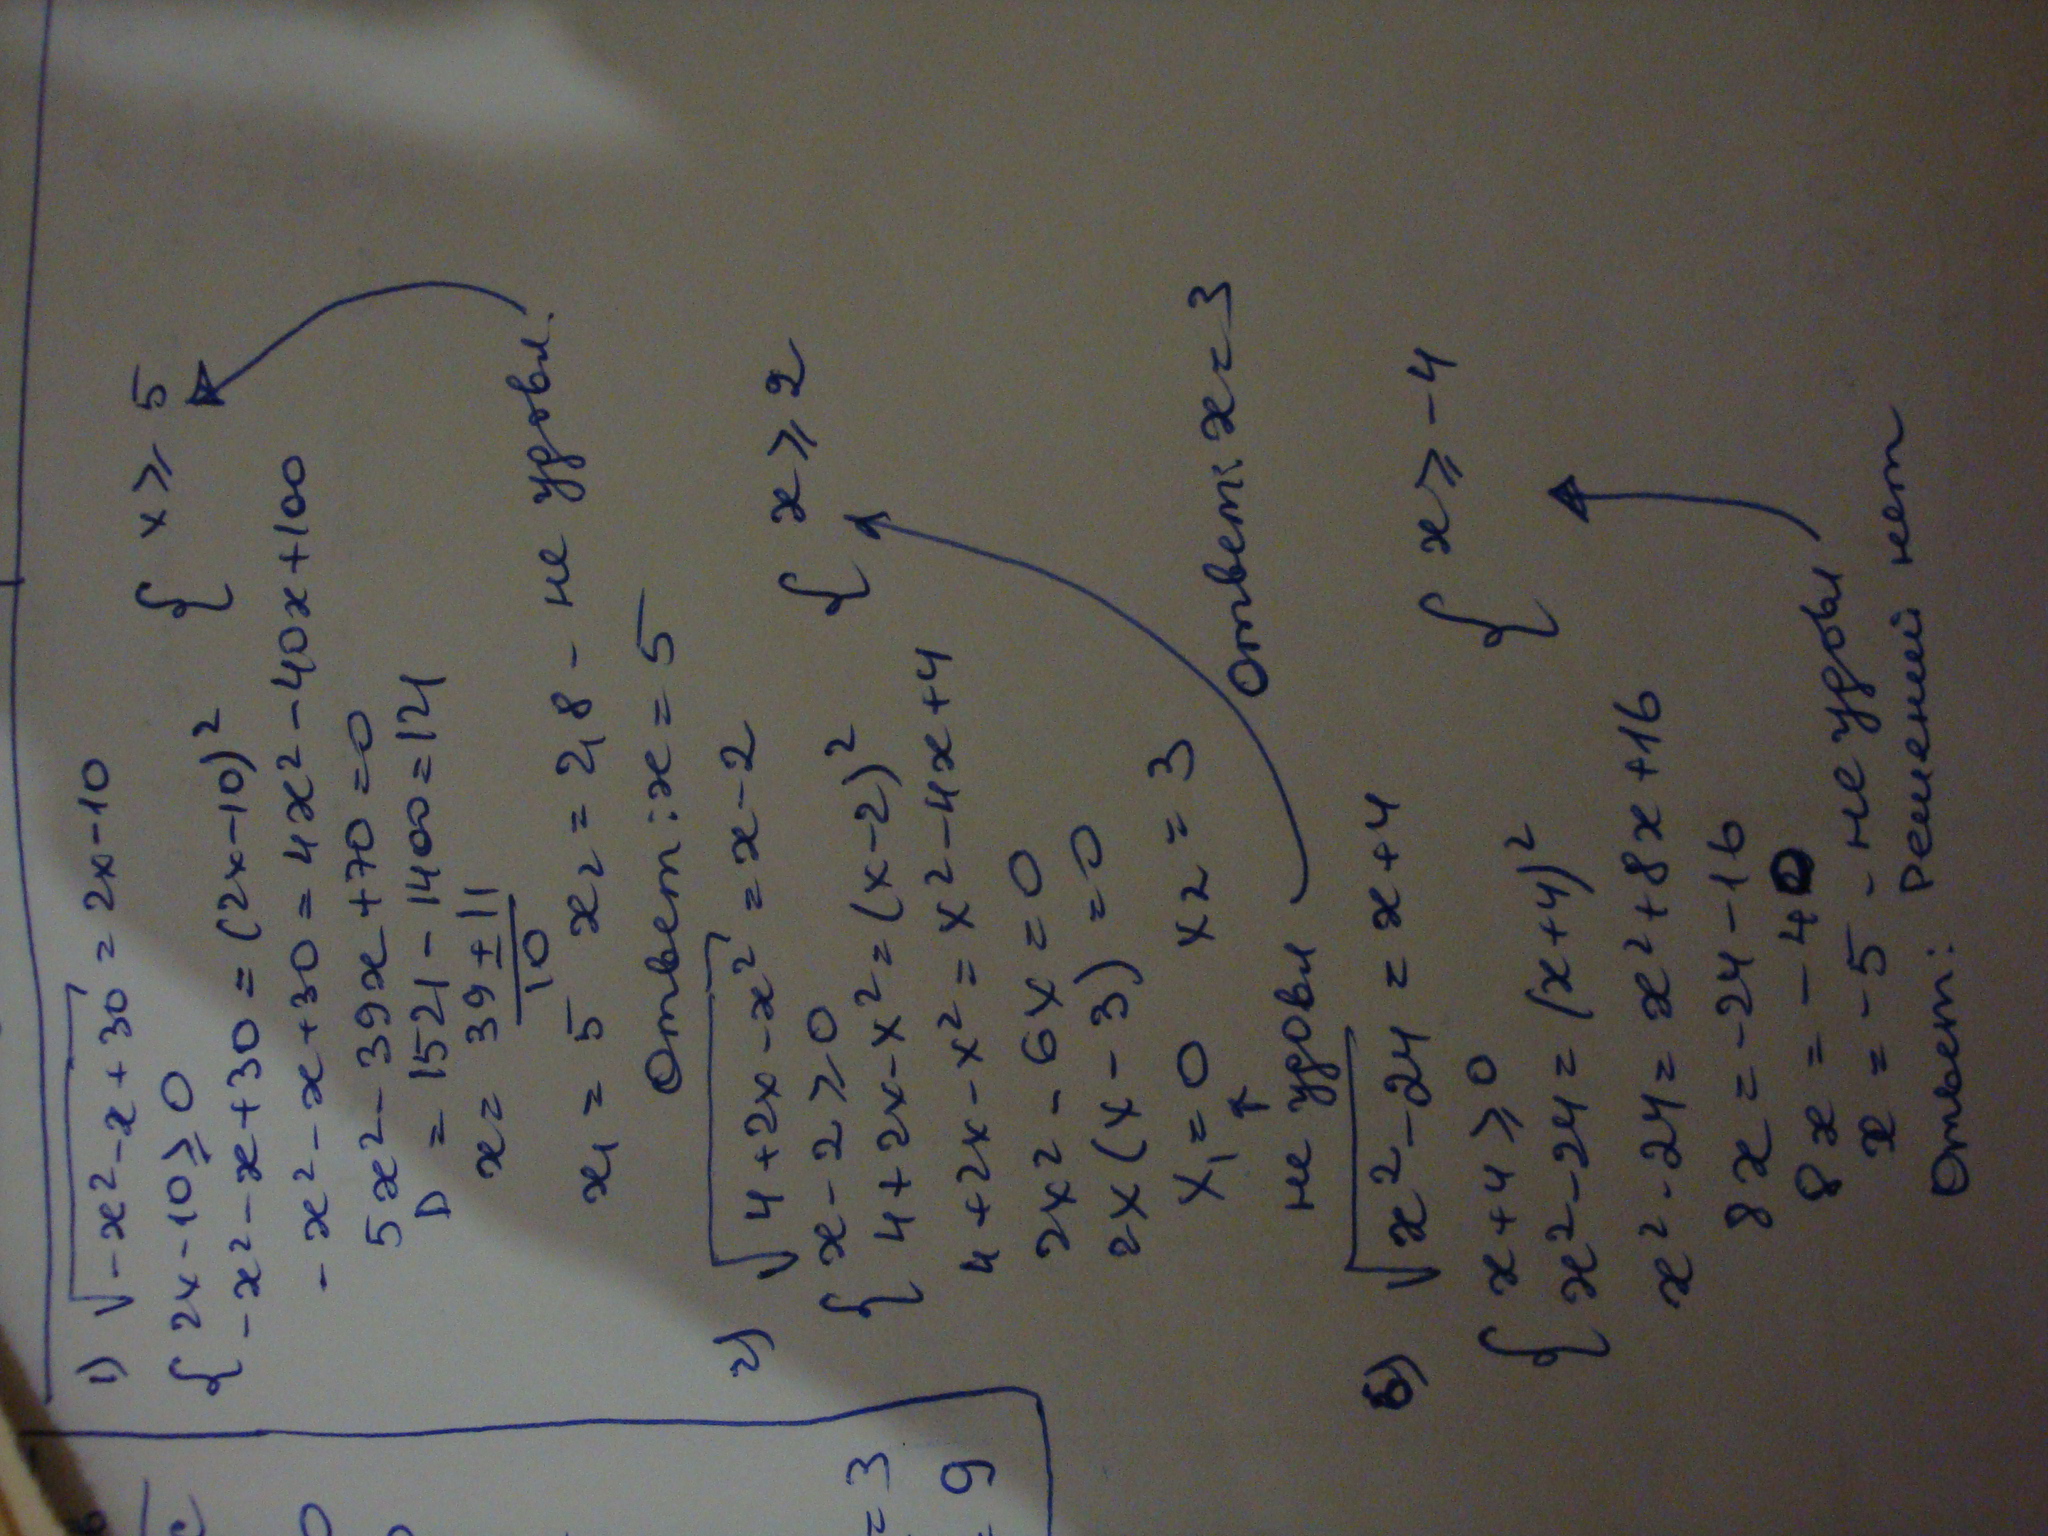 1) √-x²-x+30 = 2x-10
{ 2x-10≥0 { x≥5
-x²-x+30=(2x-10)²
-x²-x+30=4x²-40x+100
5x²-39x+70=0
D=1521-1400=121
x= 39±11
10
x₁=5 x₂=2,8 - не удовл.
Ответ: x=5
2) √4+2x-x² = x-2
{ x-2≥0 { x≥2
4+2x-x²=(x-2)²
4+2x-x²=x²-4x+4
2x²-6x=0
2x(x-3)=0
x₁=0 x₂=3
Ответ: x=3
не удовл
3) √x²-24 = x+4
{ x+4≥0 { x≥-4
x²-24=(x+4)²
x²-24=x²+8x+16
8x=-24-16
8x=-40
x=-5 - не удовл
Ответ: Решений нет
=3
9